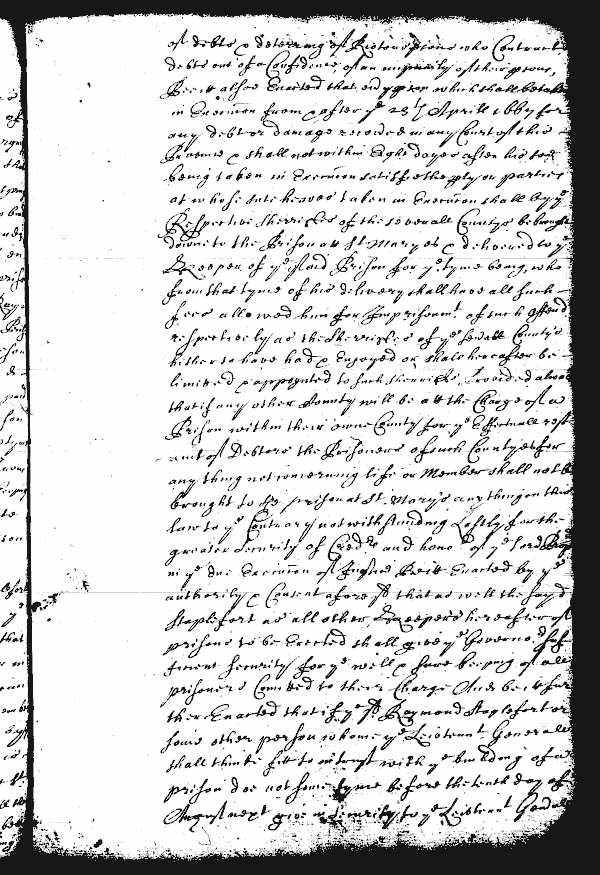 of debts & deterring of Riotous psons who Contract
debts out of a Confidence of an impunity of their psons,
Bee itt alsoe Enacted that any pson which shall be taken
in Execuc͠on from & after ye 23th Aprill 1669 for
any debt or damage recovered in any Court of this
Province & shall not within Eight dayes after his soe
being taken in Execuc͠on satisfie the pty or parties
at whose suite hee was taken in Execuc͠on shall by ye
Respective Sherriffes of the severall Countys be brought
downe to the Prison att St Maryes & delivered to ye
Keeper of ye said Prison for ye tyme being, who
from that tyme of his delivery shall have all such
fees allowed him for Imprisonmt. of such offend
respectively as the Sherriffes of ye sevall Countys
hither to have had & Enjoyed or shalbe hereafter be
limited & appoynted to such sherriffes, Provided alwaies
that if any other County will be att the Charge of a
Prison within their owne County for ye Effectuall rest
aint of Debtors the Prisoners of such Countyes for
any thing not concerning life or Member shall not be
brought to ye prison at St. Marys any thing in this
law to ye Contrary notwithstanding Lastly for the
greater Security of Credrs and honor of ye Lord Propr
in ye due Execuc͠on of Justice Bee itt Enacted by ye
authority & Consent aforesd that as well the sayd
Staplefort as all other Keepers hereafter of
prisons to be Erected shall give ye Governor suf
ficient Security for ye well & save keeping of all
prisoners Comitted to their Charge And be itt fur
ther Enacted that if ye sd Raymond Staplefort or
some other person whome ye Leiutennt Generall
shall thinke fitt to intrust with ye building of a
prison doe not some tyme before the tenth day of
August next give in Security to ye Leiutennt Genall